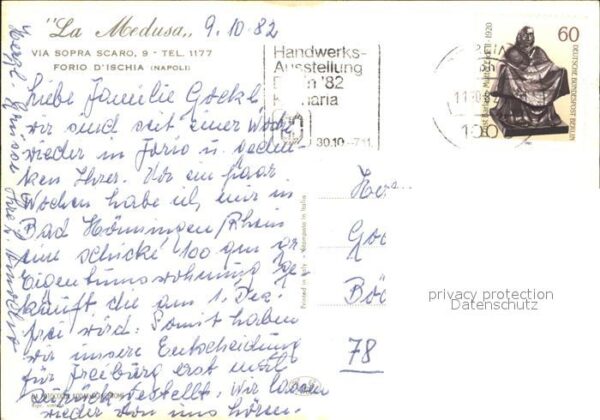 "La Medusa"
VIA SOPRA SCARO, 9 - TEL. 1177
FORIO D'ISCHIA (NAPOLI)
9.10.82
Liebe Familie Göckl
wir sind seit einer Woche
wieder in Forio u. geden-
ken Ihrer. Vor ein paar
Wochen habe ich mir in
Bad Hönningen/Rhein
eine schicke 100 qm gr
Eigentumswohnung ge-
kauft, die am 1. Dez.
frei wird. Somit haben
wir unsere Entscheidung
für Freiburg erst mal
zurückgestellt. Wir lassen
wieder von uns hören.
Herzl. Grüsse Ihre
Handwerks-
Ausstellung
Berlin '82
30.10. - 7.11.
100
60
DEUTSCHE BUNDESPOST BERLIN
1920
Printed in Italy - Stampato in Italia
78
privacy protection
Datenschutz